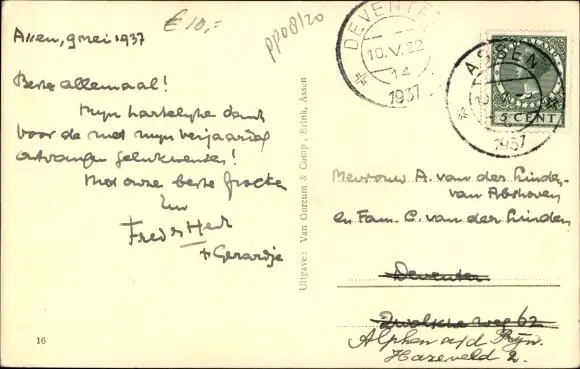 € 10,=
pp08/20
Assen, 9 mei 1937
Beste allemaal!
Mijn hartelijke dank
voor de met mijn verjaardag
ontvangen gelukwensen!
Met onze beste groeten
Fred
+ Gerardje
16
Uitgave: Van Gorcum & Comp., Brink, Assen
DEVENTER
10.V.22
14
1937
ASSEN
1937
5 CENT
Mevrouw A. van der Linden-
van Abshoven
en Fam. C. van der Linden
Deventer
Zwolsche weg 62
Alphen a/d Rijn.
Hazeveld 2.